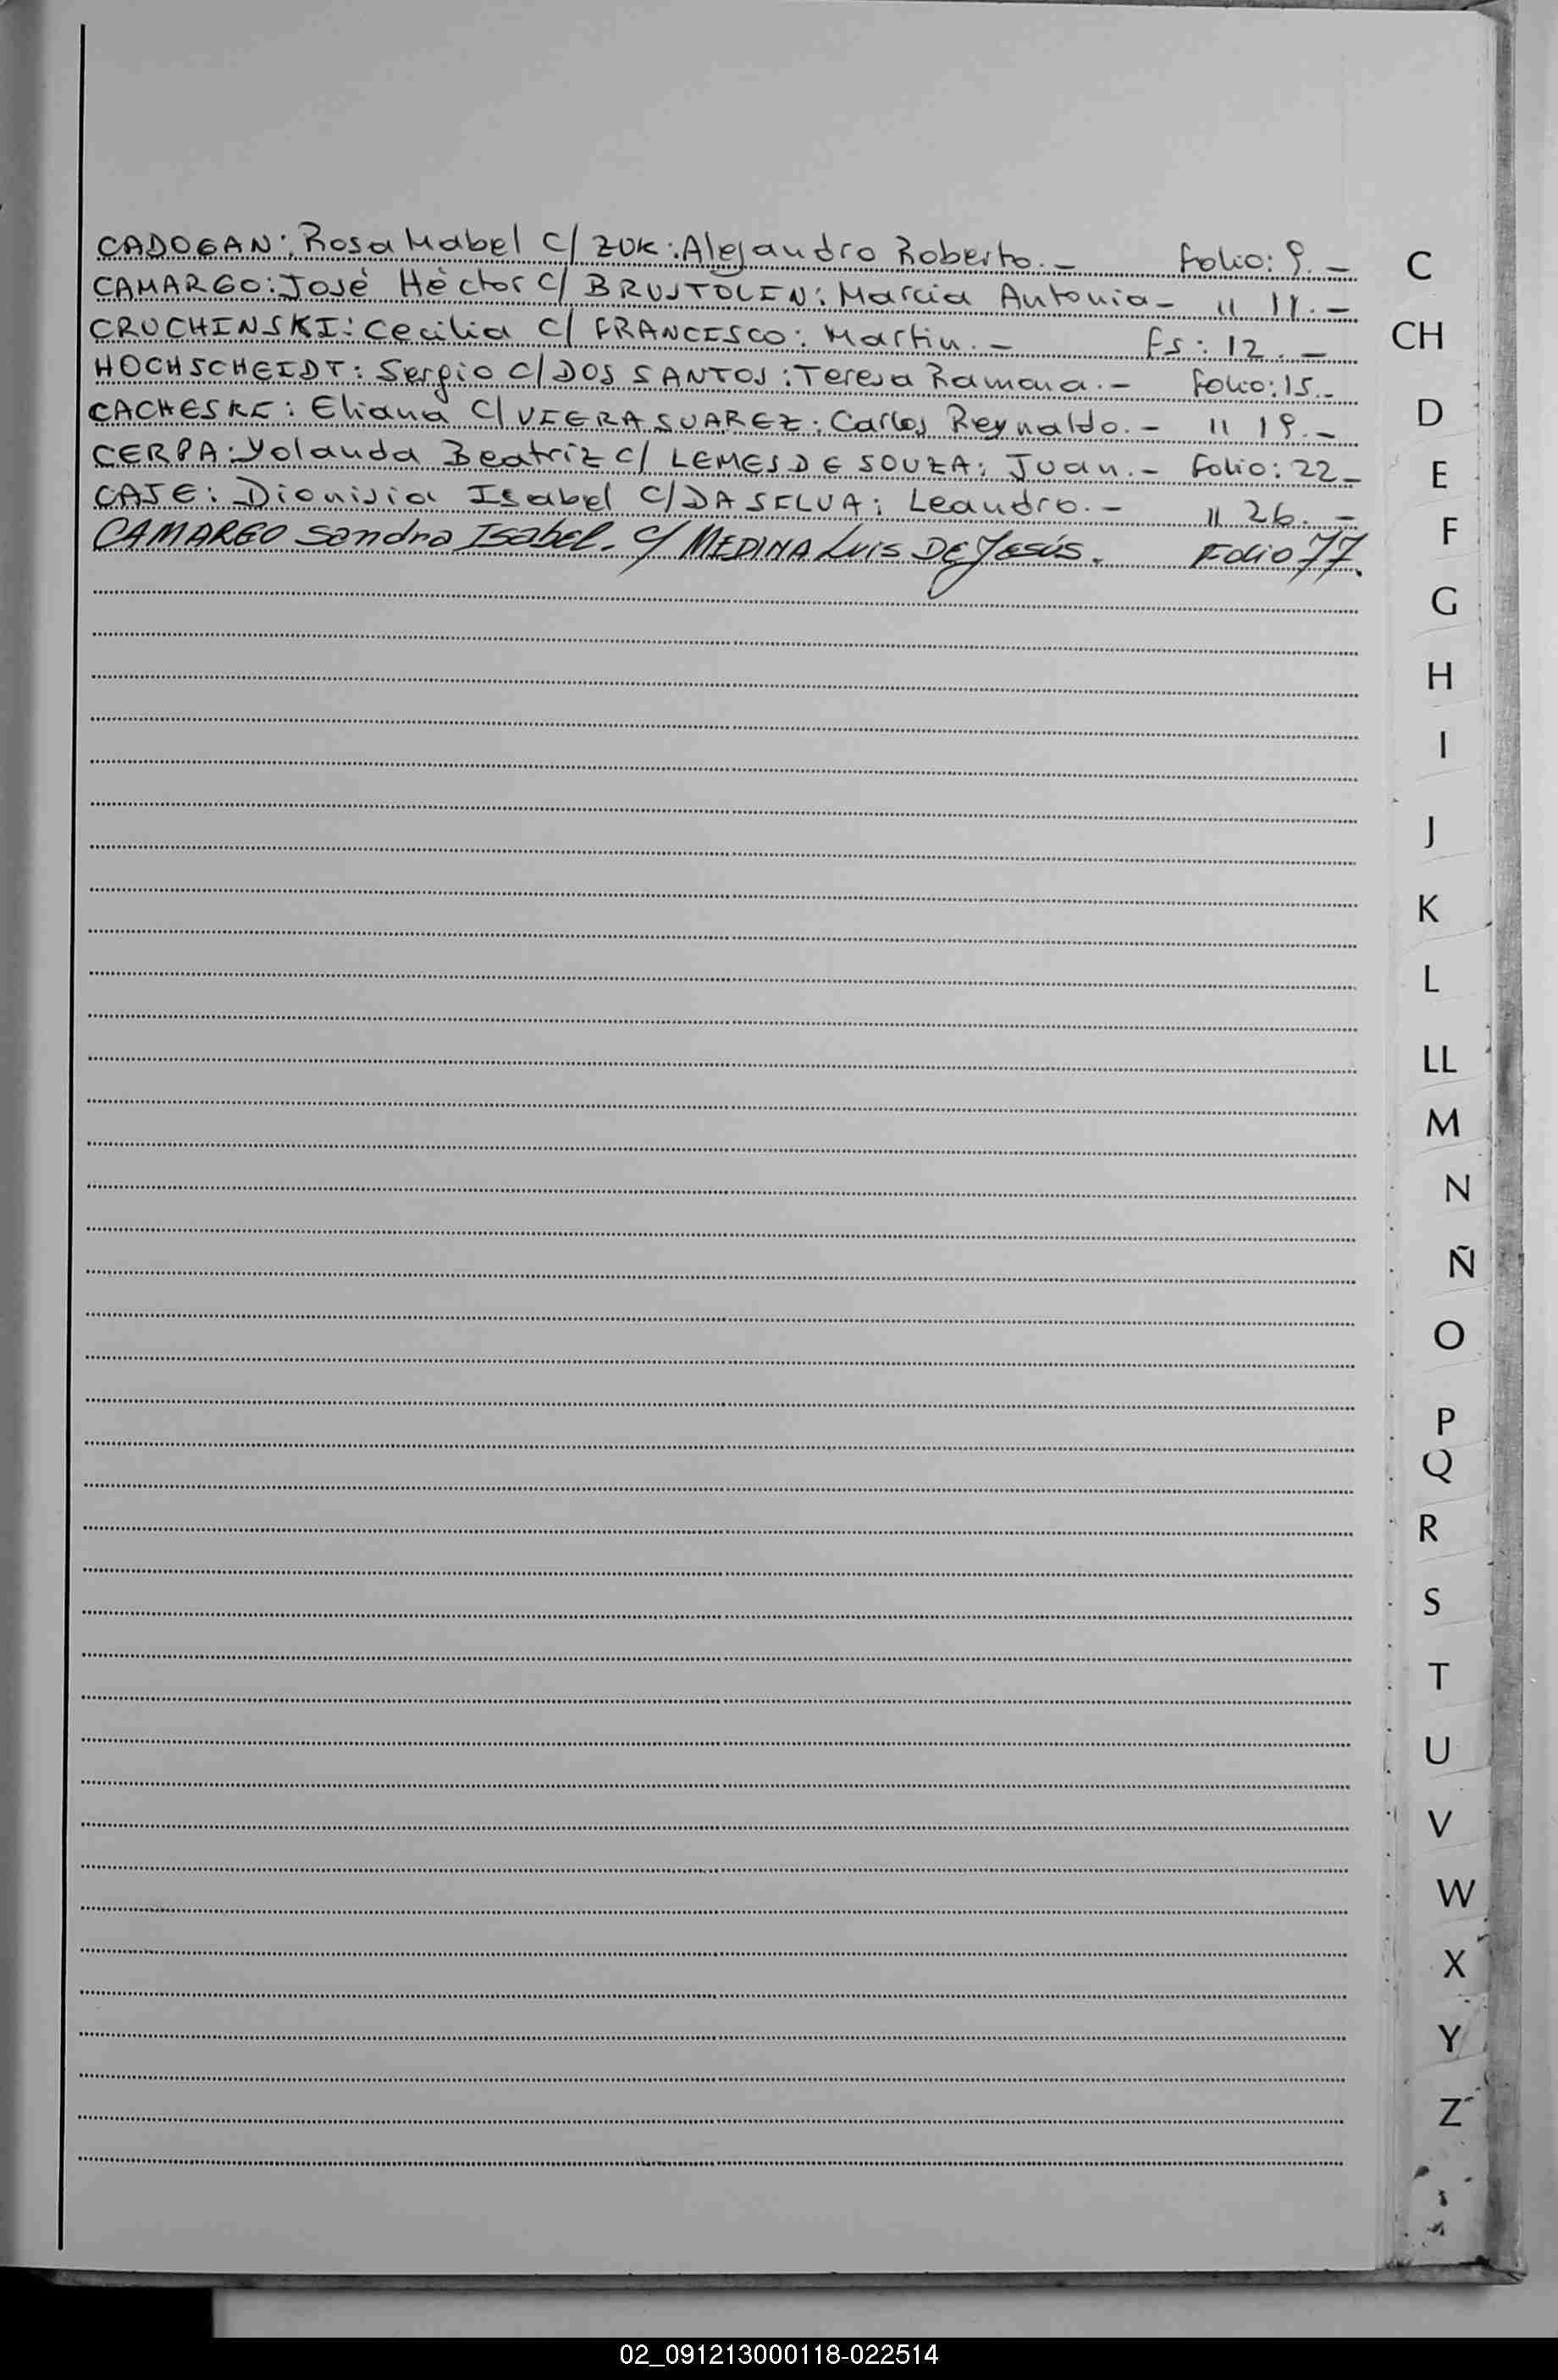 CADOGAN: Rosa Mabel C/ ZUK: Alejandro Roberto.- Folio: 9.-
CAMARGO: José Héctor C/ BRUSTOLIN: Marcia Antonia- " 11.-
CRUCHINSKI: Cecilia C/ FRANCISCO: Martin.- Fs: 12.-
HOCHSCHEIDT: Sergio C/ DOS SANTOS: Teresa Ramona.- Folio: 15.-
CACHESKI: Eliana C/ VIERA SUAREZ: Carlos Reynaldo.- " 19.-
CERPA: Yolanda Beatriz C/ LEMES DE SOUZA: Juan.- Folio: 22-
CAJE: Dionisia Isabel C/ DA SILVA: Leandro.- " 26.-
CAMARGO Sandra Isabel. C/ MEDINA Luis DE Jesús. Folio 77.
C
CH
D
E
F
G
H
I
J
K
L
LL
M
N
Ñ
O
P
Q
R
S
T
U
V
W
X
Y
Z
02_091213000118-022514